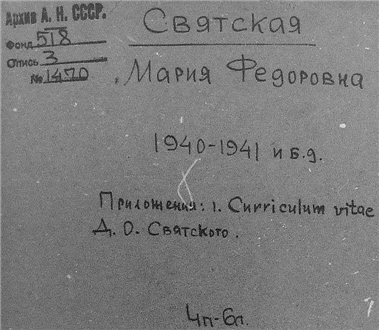 Архив А. Н. СССР.
Фонд 518
Опись 3
№ 1470
Святская
Мария Федоровна
1940-1941 и б.д.
Приложения: 1. Curriculum vitae
Д. О. Святского.
4п-6л.